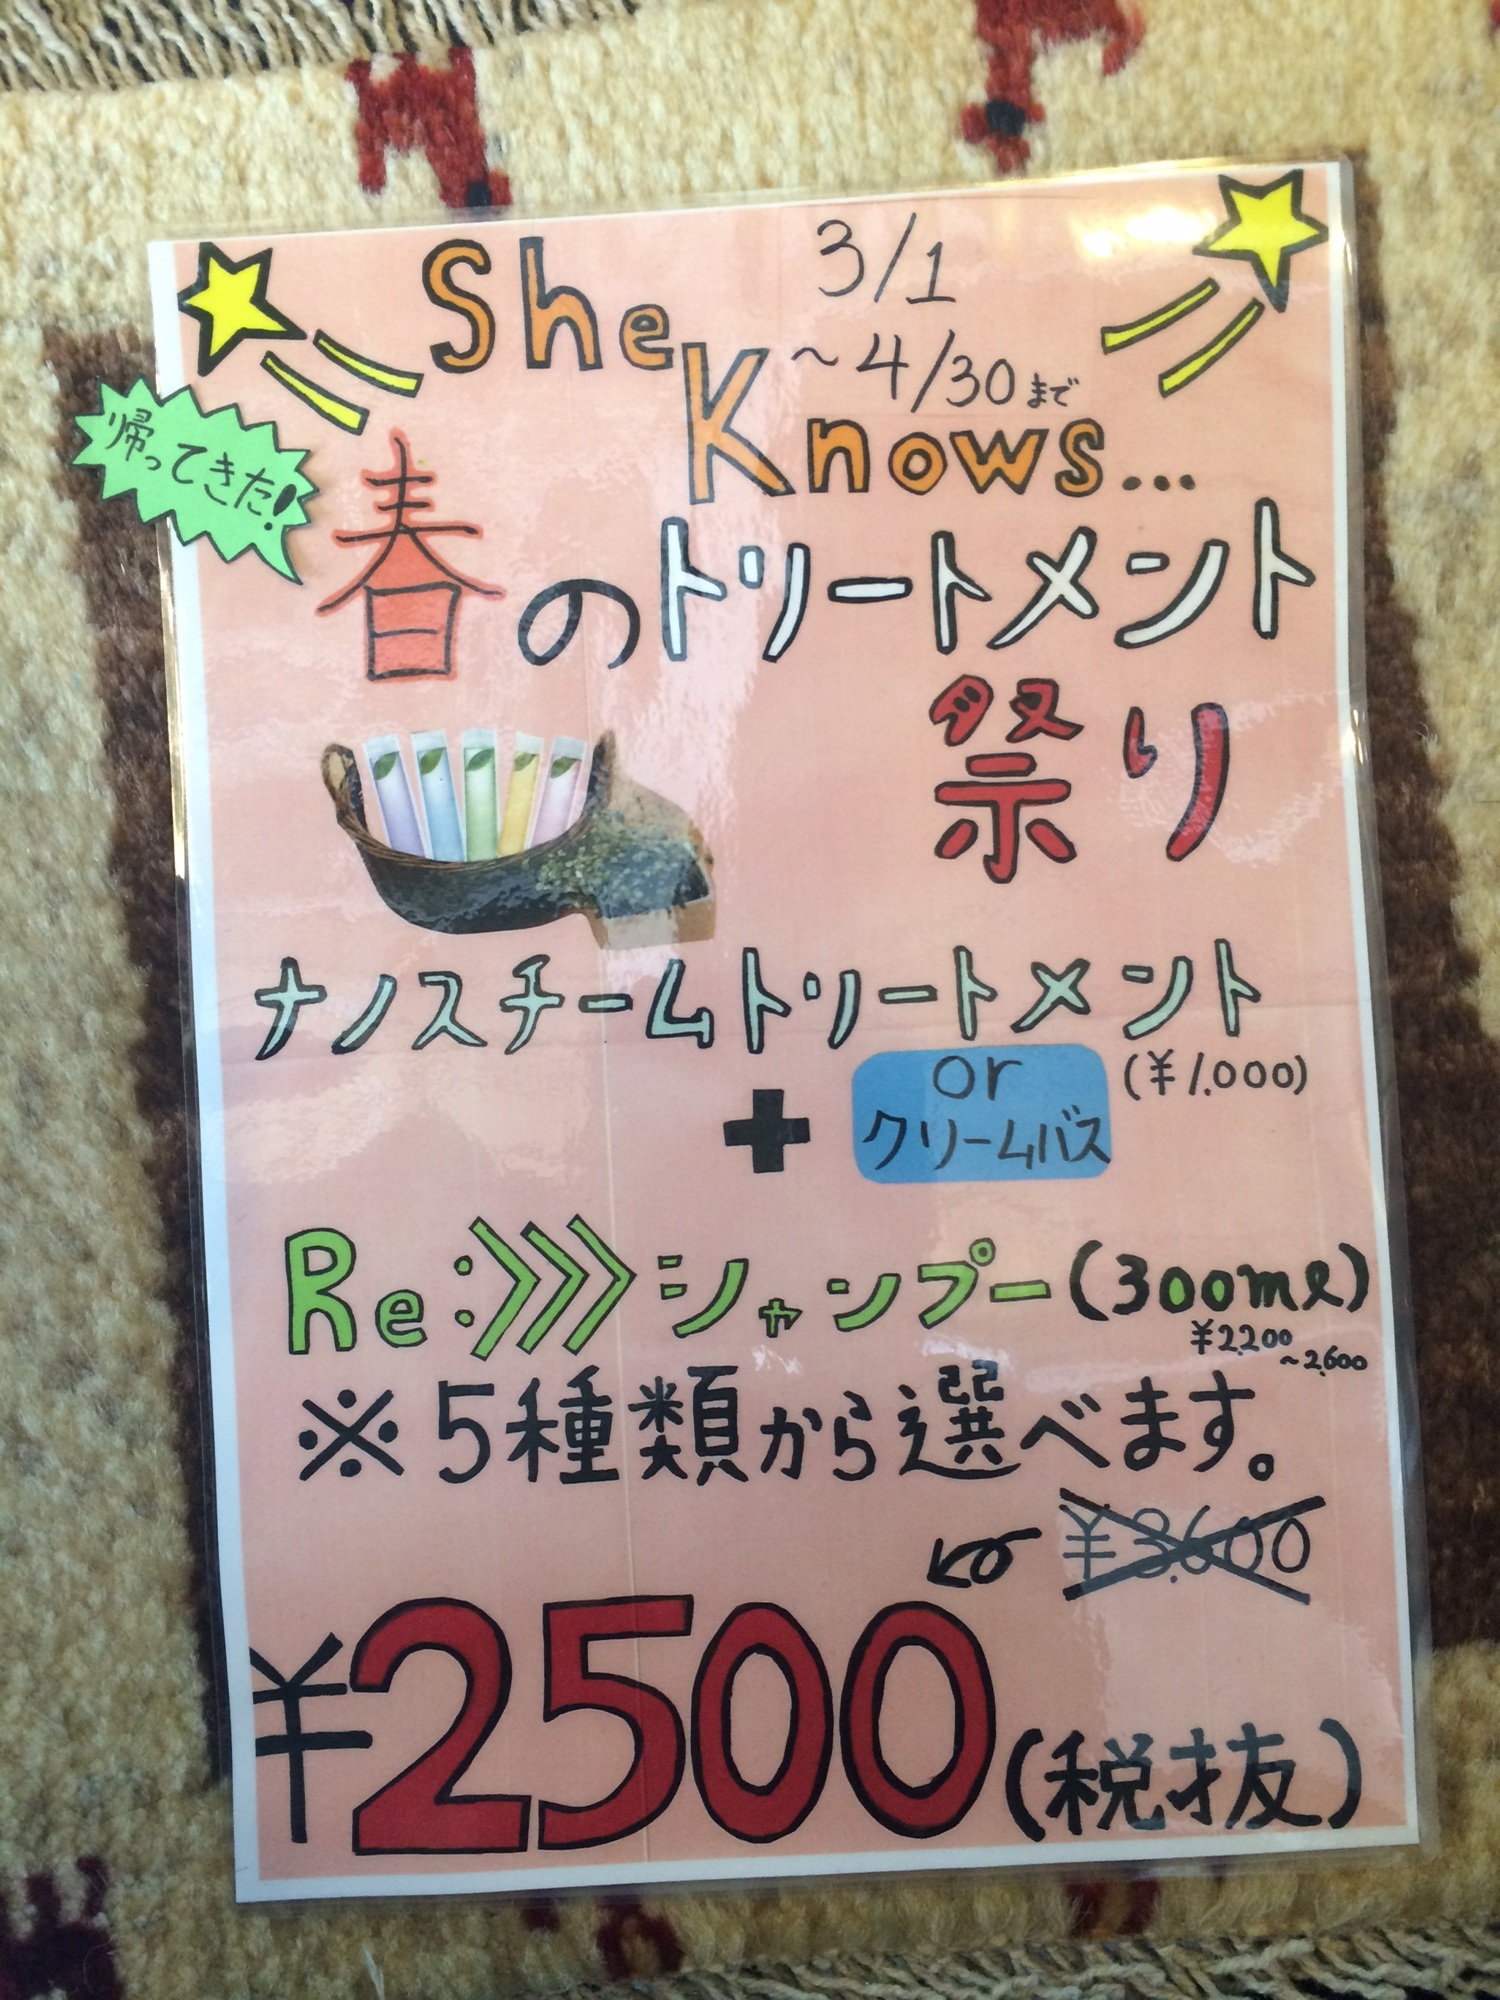 She
3/1
~4/30まで
Knows...
帰ってきた!
春のトリートメント
祭り
ナノスチームトリートメント
(¥1,000)
+
or
クリームバス
Re:>>>シャンプー(300ml)
¥2,200
~2,600
※5種類から選べます。
¥3,600
¥2500(税抜)